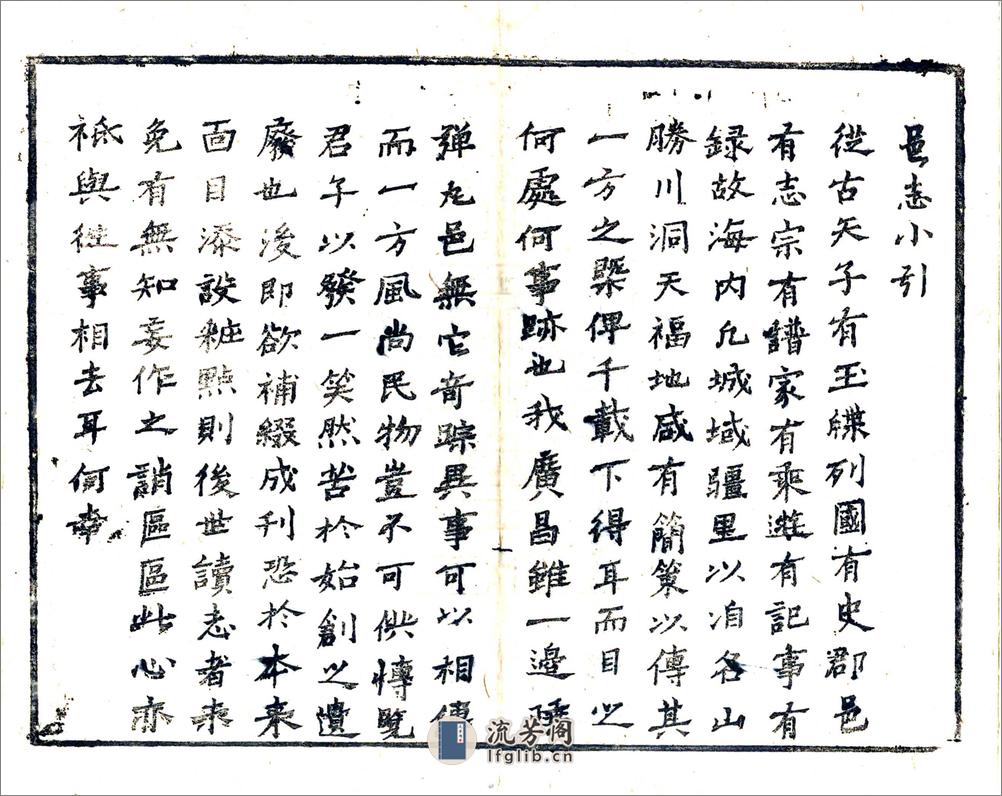 邑志小引
從古天子有玉牒列國有史郡邑
有志宗有譜家有乘遊有記事有
録故海内凢城域疆里以洎名山
勝川洞天福地咸有簡策以傳其
一方之槩俾千載下得耳而目之
何處何事跡也我廣昌雖一邉陲
弹丸邑無它竒踪異事可以相傳
而一方風尚民物豈不可供博覧
君子以發一笑然苦於始創之遺
廢也後即欲補綴成刊恐於本来
面目添設粧點則後世讀志者未
免有無知妄作之誚區區此心亦
祗與徃事相去耳何幸
流芳阁
lfglib.cn